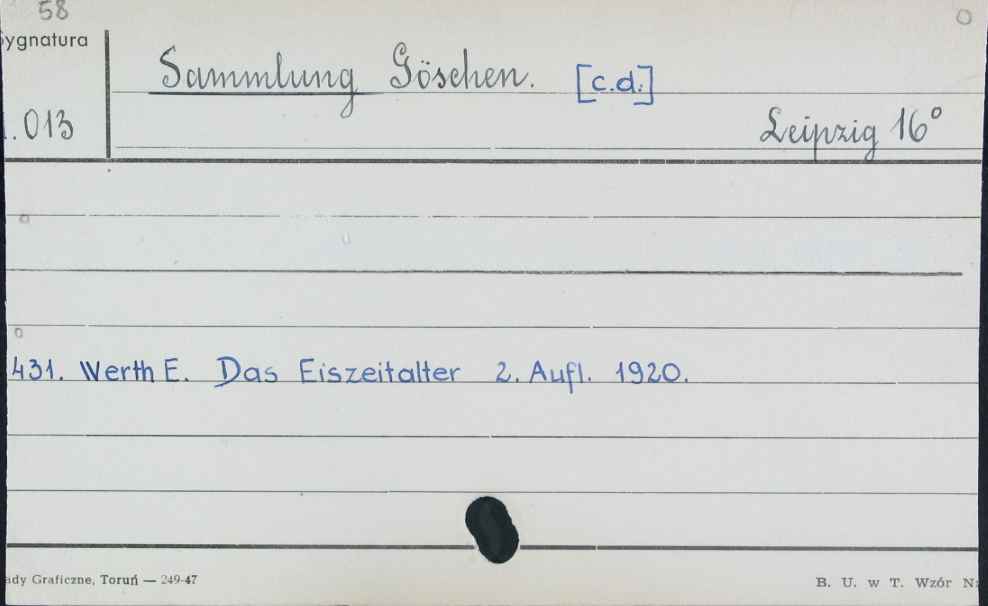 58
ygnatura
Sammlung Göschen. [c.d.]
.013
Leipzig 16°
431. Werth E. Das Eiszeitalter 2. Aufl. 1920.
ady Graficzne, Toruń — 249-47
B. U. w T. Wzór N